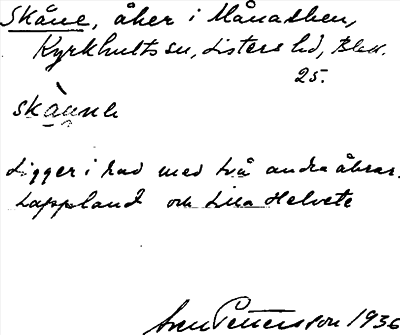 Skåne, åker i Månashen,
Kyrkhults sn, Listers hd, Blek.
25.
skàunə
Ligger i rad med två andra åkrar.
Lappland och Lilla Helvete
Sven Pettersson 1936